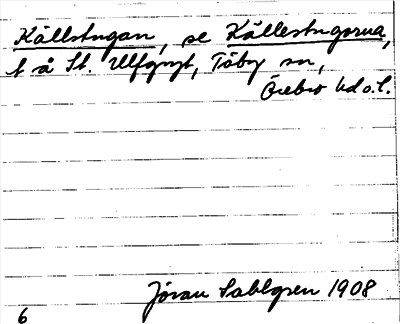 Källstugan, se Källestugorna,
t å St. Ullfgryt, Täby sn,
Örebro hd o. l.
Jöran Sahlgren 1908
6